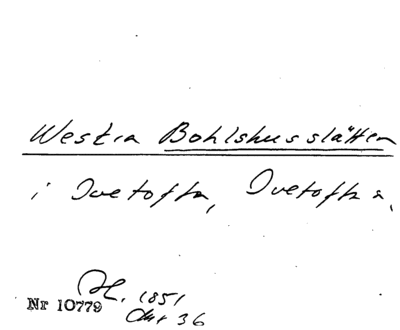 Westra Bohlshusslätten
i Ivetofta, Ivetofta,
Nr 10779
1851
36